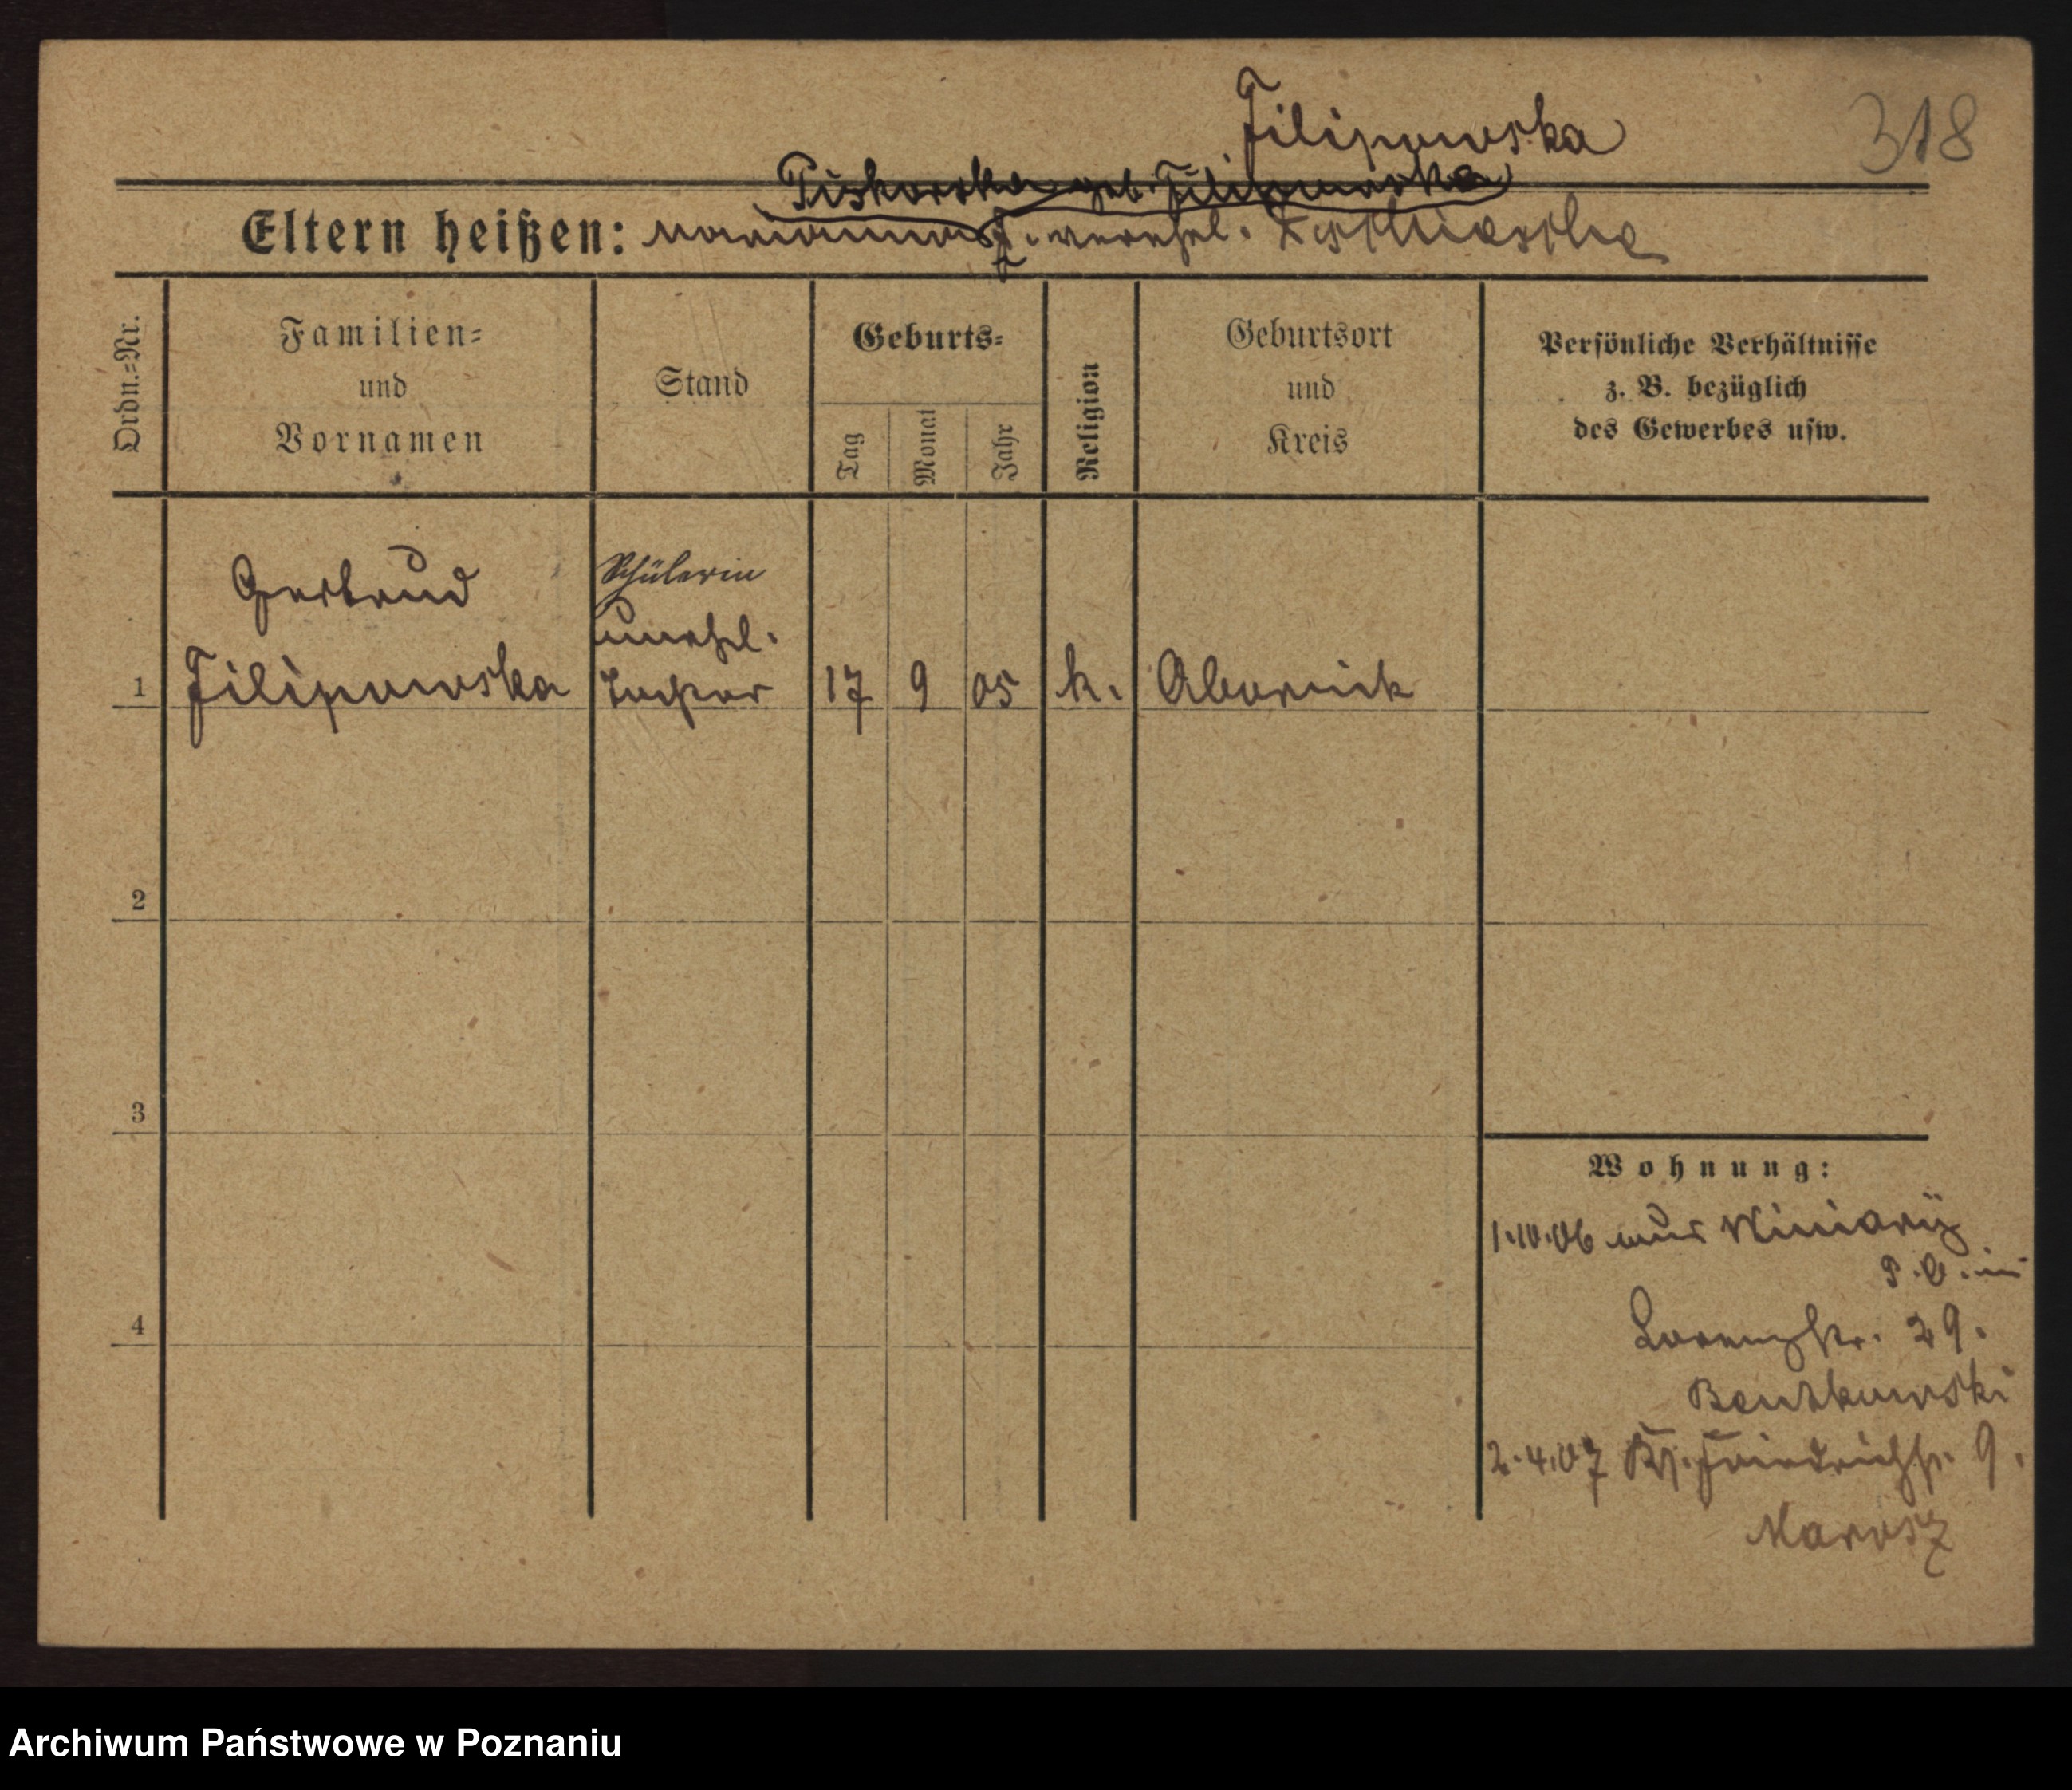 318
Filipowska
Piskorska geb. Filipowska
Eltern heißen: verehel.
Ordn.=Nr.
Familien=
und
Vornamen
Stand
Geburts=
Tag
Monat
Jahr
Religion
Geburtsort
und
Kreis
Persönliche Verhältnisse
z. B. bezüglich
des Gewerbes usw.
Gertrud
Schülerin
unehel.
1 Filipowska Tochter 17 9 05 k. Obornik
2
3
4
Wohnung:
1.10.06 aus Winiary
Lorenzstr. 29.
Bentkowski
2.4.07 Kr. Friedrichstr. 9.
Marosz
Archiwum Państwowe w Poznaniu